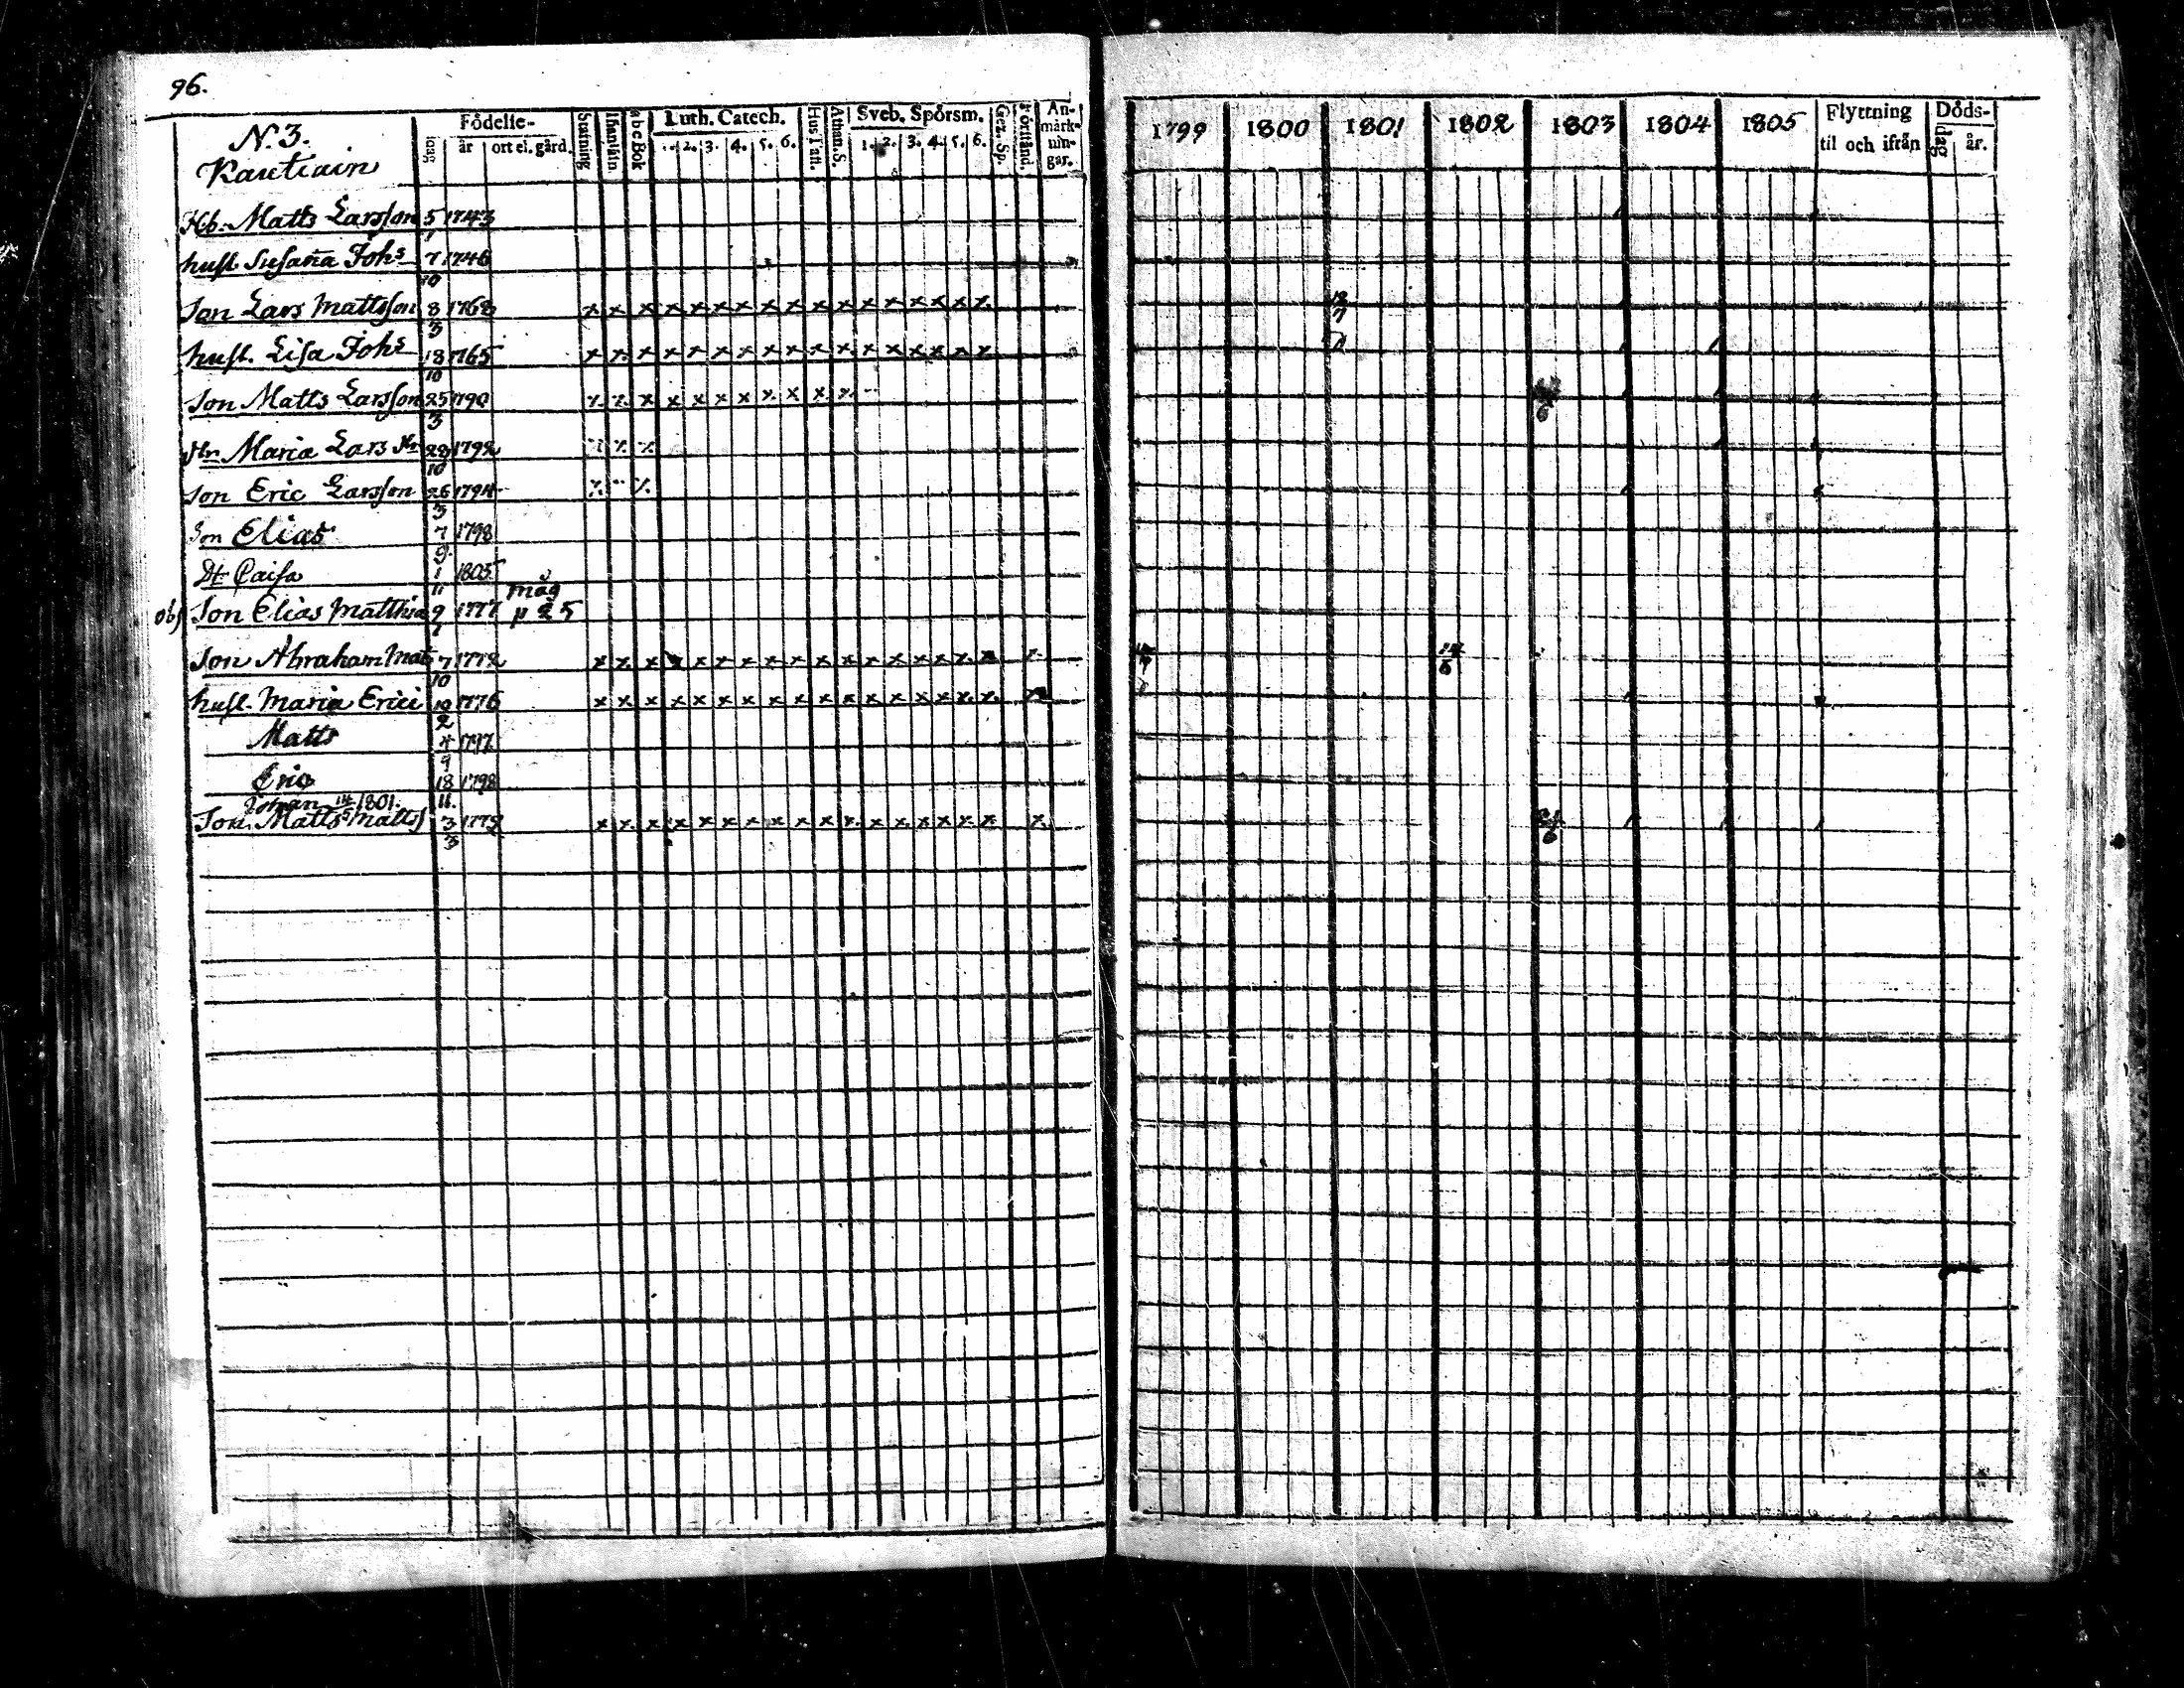 96.
N. 3.
Födelse-
dag
år
ort el. gård.
abcBok
Luth. Catech.
2. 3. 4. 5. 6.
Hus Taft.
Athan. S.
Sveb. Spörsm.
1. 2. 3. 4. 5. 6.
Gez. Sp.
Förstånd.
An-
märk-
nin-
gar.
1799 1800 1801 1802 1803 1804 1805
Flyttning
til och ifrån
Döds-
dag
år.
Hb. Matts Larsson 5 1743
1
hust. Susana Johs 7 1746
10
Son Lars Mattsson 8 1768 x x x x x x x x x x x x x x x x x
3
hust. Lisa Johs 18 1765 x x x x x x x x x x x x x x x x x
10
Son Matts Larsson 25 1790 x x x x x x x x x x
3
Maria Lars 1792
10
Son Eric Larsson 26 1794
3
Son Elias 7 1798
9
Dt Caisa 1 1805
11
måg
obs Son Elias Matths 9 1777 p 25
Son Abraham Mats 7 1772 x x x x x x x x x x x x x x x x x
10
hust. Maria Erici 1776 x x x x x x x x x x x x x x x x x
2
Matts 4 1797
9
Eric 18 1798
11.
Johan 14 1801.
Son Matts Matts 3 1779 x x x x x x x x x x x x x x x x x x
3